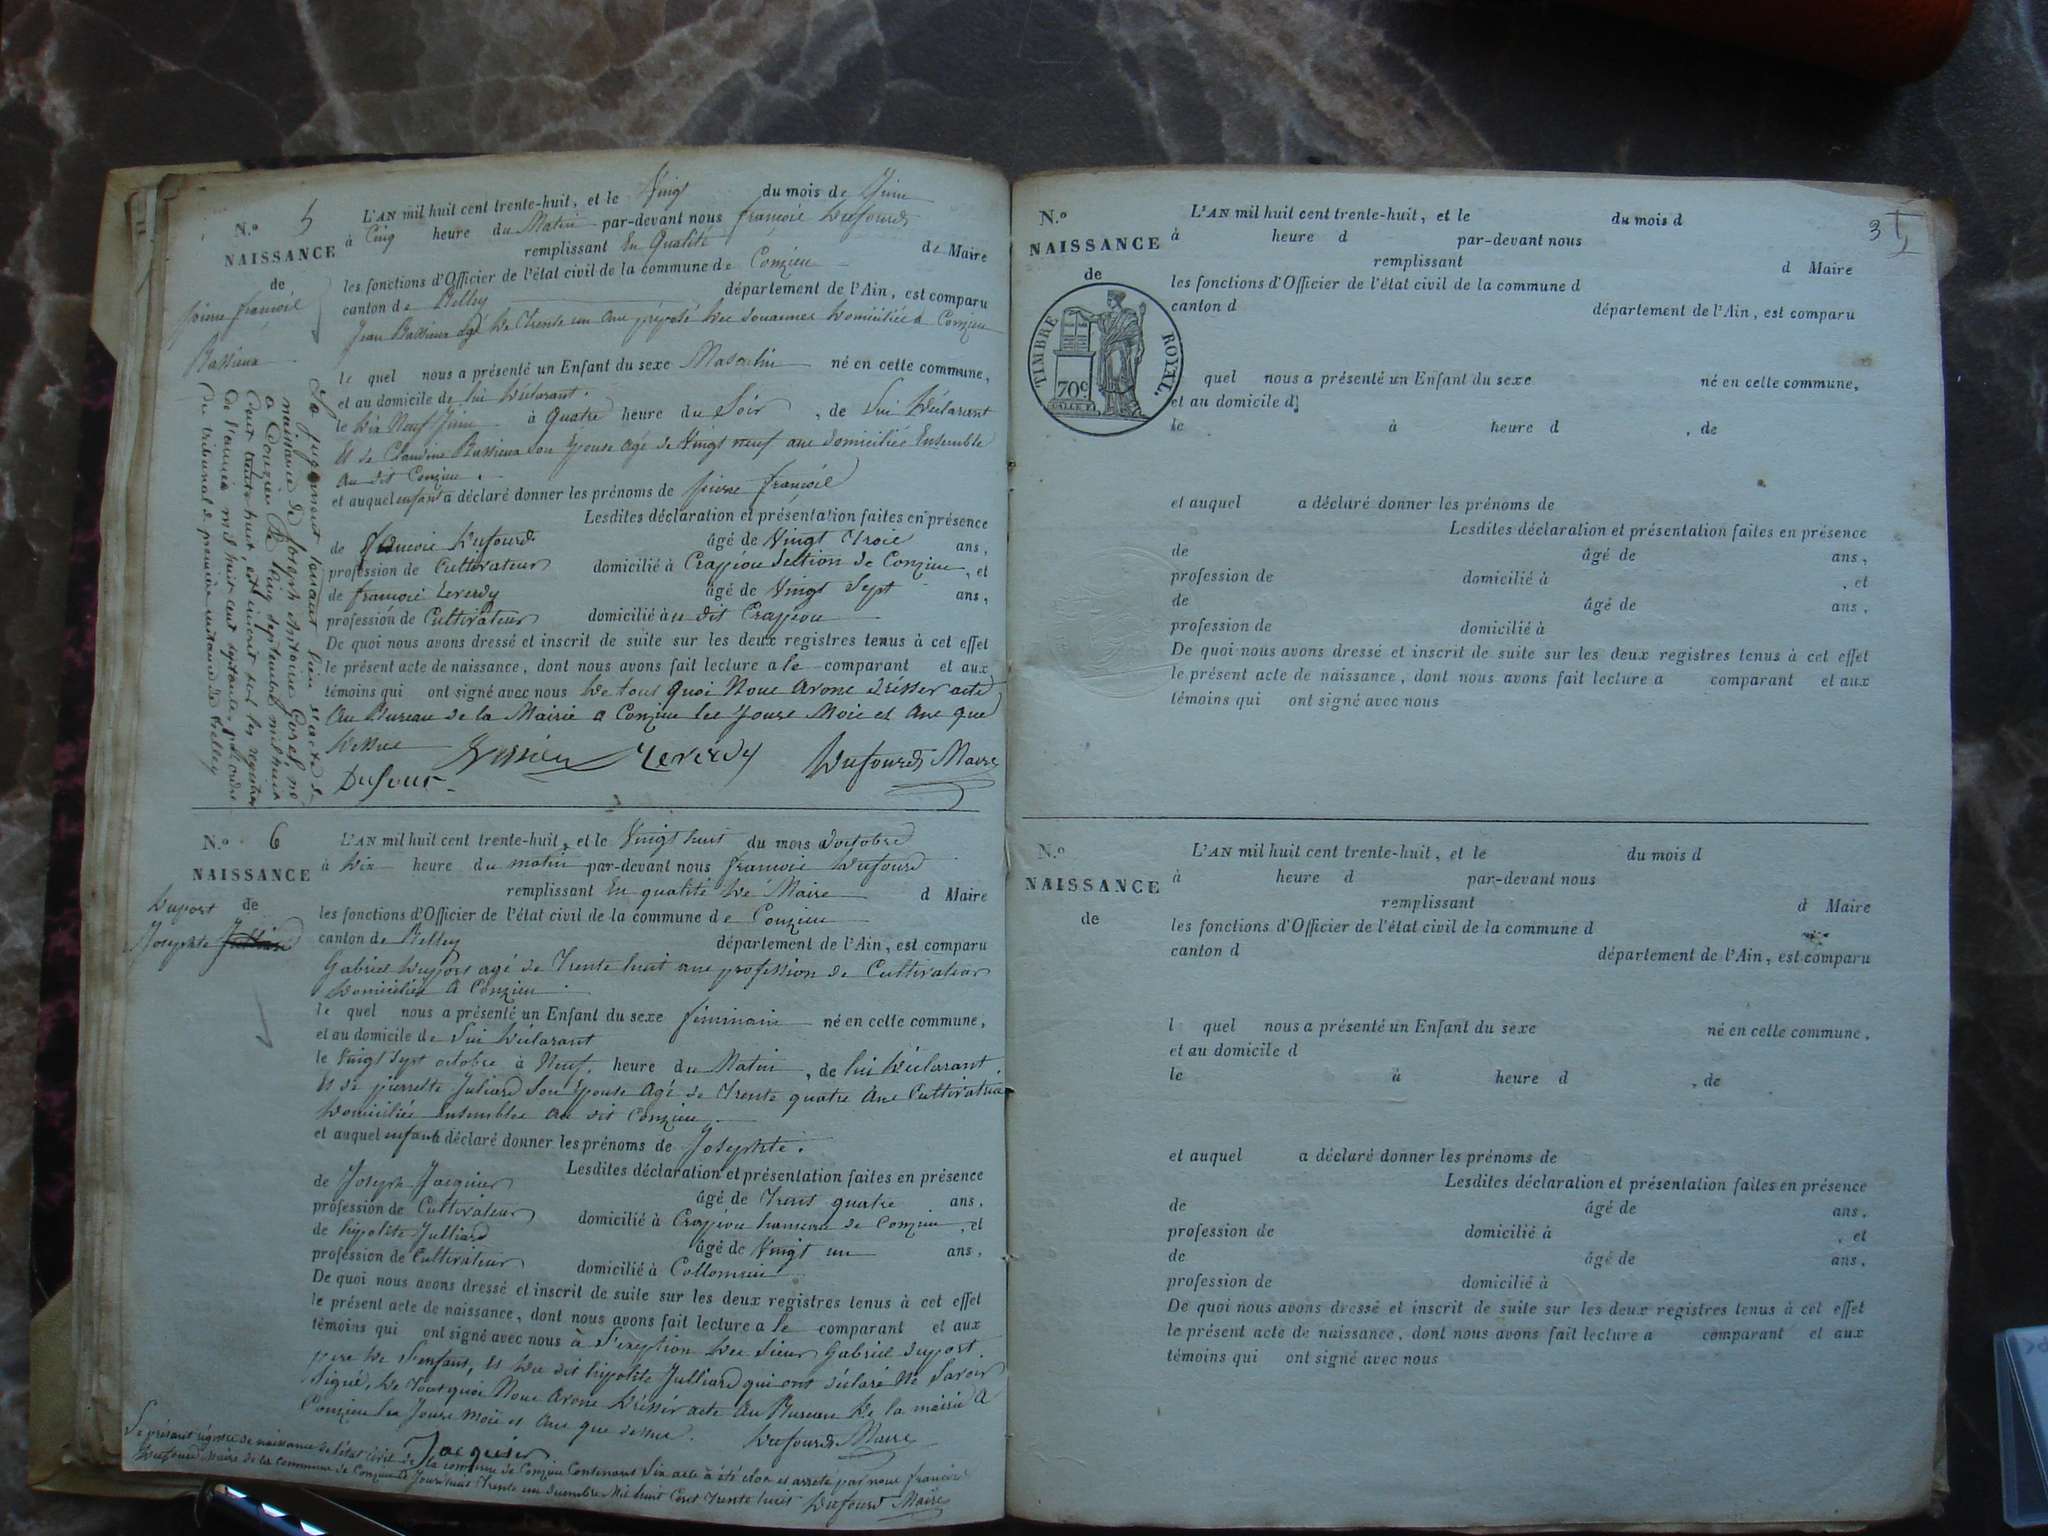 N.o 5
NAISSANCE
de
pierre françois
Bassieux
L'AN mil huit cent trente-huit, et le Vingt du mois de Juin
à Cinq heure du Matin par-devant nous françois Dufourd
remplissant En Qualité de Maire
les fonctions d'Officier de l'état civil de la commune de Conzieu
canton de Belley département de l'Ain, est comparu
Jean Bassieux agé De Trente un ans préposé Des Douannes Domiciliée a Conzieu
le quel nous a présenté un Enfant du sexe Masculin né en cette commune,
et au domicile de lui Déclarant.
le Dix Neuf Juin à Quatre heure du Soir, de Lui Déclarant
Et de Claudine Bassieux son Epouse agé de Vingt neuf ans domiciliée Ensemble
au dit Conzieu.
et auquel enfant a déclaré donner les prénoms de pierre françois
Lesdites déclaration et présentation faites en présence
de françois Dufourd âgé de Vingt Trois ans,
profession de Cultivateur domicilié à Crapéou Section de Conzieu, et
de françois Leverdy âgé de Vingt Sept ans,
profession de Cultivateur domicilié à u dit Crapéou
De quoi nous avons dressé et inscrit de suite sur les deux registres tenus à cet effet
le présent acte de naissance, dont nous avons fait lecture a le comparant et aux
témoins qui ont signé avec nous De tous Quoi Nous avons Dresser acte
Au Bureau de la Mairie a Conzieu les Jours Mois et Ans que
Dessus
Leverdy Dufourd Maire
Dufour
Le jugement tenant lieu d'acte de
naissance de Joseph Antoine
a Conzieu le Vingt septembre mil huit
Cent trente huit est inscrit sur les registres
de l'année mil huit cent septante
du tribunal de première instance de Belley
N.o 6
NAISSANCE
de
Duport
Josephte
L'AN mil huit cent trente-huit, et le Vingt huit du mois doctobre
à Dix heure du matin par-devant nous françois Dufourd
remplissant En qualité De Maire d Maire
les fonctions d'Officier de l'état civil de la commune de Conzieu
canton de Belley département de l'Ain, est comparu
Gabriel Duport agé de Trente huit ans profession de Cultivateur
Domiciliée a Conzieu
le quel nous a présenté un Enfant du sexe féminain né en cette commune,
et au domicile de Lui Déclarant
le Vingt Sept octobre à Neuf heure du Matin, de lui Déclarant
Et de pierrette Juliard Son Epouse Agé de Trente quatre Ans Cultivatrice
Domiciliée Ensemblee au dit Conzieu.
et auquel enfant a déclaré donner les prénoms de Josephte.
Lesdites déclaration et présentation faites en présence
de Joseph Jacquier âgé de Trent quatre ans,
profession de Cultivateur domicilié à Crapéou hameau de Conzieu, et
de hipolite Julliard âgé de Vingt un ans,
profession de Cultivateur domicilié à Collomieu
De quoi nous avons dressé et inscrit de suite sur les deux registres tenus à cet effet
le présent acte de naissance, dont nous avons fait lecture a le comparant et aux
témoins qui ont signé avec nous à L'exeption Des Sieur Gabriel duport.
pere De L'enfant, Et Du dit hipolite Julliard qui ont déclaré Ne Savoir
Signé, De Tout quoi Nous Avons Dressér acte Au Bureau De la mairie A
Conzieu les Jours mois et Ans que dessus. Dufourd Maire
Jacquier
Le présent régistre de naissance de l'état civil de la commune de Conzieu Contenant Six acte à été clos et arreté par nous francois
Dufourd Maire de la commune de Conzieu Le Jourd'huit Trente un Decembre Mil huit Cent Trente huit Dufourd Maire
3
N.o
NAISSANCE
de
TIMBRE ROYAL.
70c
L'AN mil huit cent trente-huit, et le du mois d
à heure d par-devant nous
remplissant d Maire
les fonctions d'Officier de l'état civil de la commune d
canton d département de l'Ain, est comparu
quel nous a présenté un Enfant du sexe né en cette commune,
et au domicile d
le à heure d , de
et auquel a déclaré donner les prénoms de
Lesdites déclaration et présentation faites en présence
de âgé de ans,
profession de domicilié à , et
de âgé de ans,
profession de domicilié à
De quoi nous avons dressé et inscrit de suite sur les deux registres tenus à cet effet
le présent acte de naissance, dont nous avons fait lecture a comparant et aux
témoins qui ont signé avec nous
N.o
NAISSANCE
de
L'AN mil huit cent trente-huit, et le du mois d
à heure d par-devant nous
remplissant d Maire
les fonctions d'Officier de l'état civil de la commune d
canton d département de l'Ain, est comparu
l quel nous a présenté un Enfant du sexe né en cette commune,
et au domicile d
le à heure d , de
et auquel a déclaré donner les prénoms de
Lesdites déclaration et présentation faites en présence
de âgé de ans,
profession de domicilié à , et
de âgé de ans,
profession de domicilié à
De quoi nous avons dressé et inscrit de suite sur les deux registres tenus à cet effet
le présent acte de naissance, dont nous avons fait lecture a comparant et aux
témoins qui ont signé avec nous